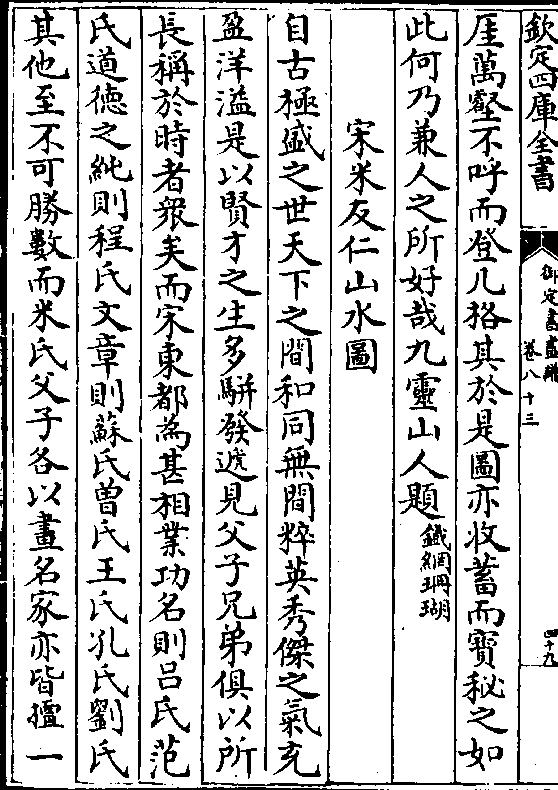 欽定四庫全書
御定書畫譜
卷八十三
四十九
厓萬壑不呼而登几格其於是圖亦收蓄而寶秘之如
此何乃兼人之所好哉九靈山人題鐵網珊瑚
宋米友仁山水圖
自古極盛之世天下之間和同無間粹英秀傑之氣充
盈洋溢是以賢才之生多駢發遞見父子兄弟俱以所
長稱於時者衆矣而宋東都為甚相業功名則吕氏范
氏道德之純則程氏文章則蘇氏曽氏王氏孔氏劉氏
其他至不可勝數而米氏父子各以畫名家亦皆擅一